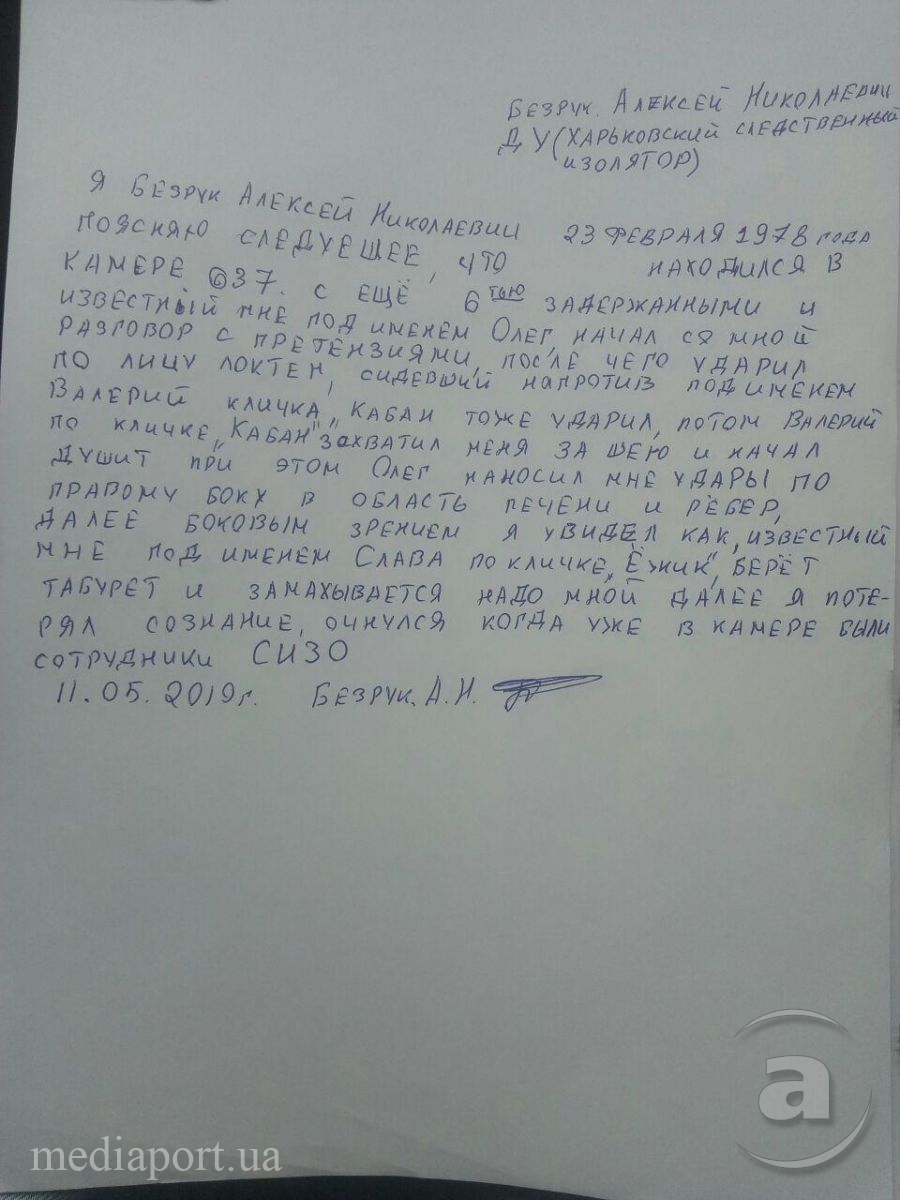 Безрук. Алексей Николаевич
ДУ (Харьковский следственный
изолятор)
Я Безрук Алексей Николаевич 23 февраля 1978 года
поясняю следуешее, что находился в
камере 637. с ещё 6тью задержанными и
известный мне под именем Олег, начал ся мной
разговор с претензиями, после чего ударил
по лицу локтем, сидевший напротив под именем
Валерий кличка „Кабан тоже ударил, потом Валерий
по кличке „Кабан" захватил меня за шею и начал
душит при этом Олег наносил мне удары по
правому боку в область печени и рёбер,
далее боковым зрением я увидел как, известный
мне под именем Слава по кличке „Ёжик", берёт
табурет и замахывается надо мной далее я поте-
рял сознание, очнулся когда уже в камере были
сотрудники СИЗО
11.05.2019г. Безрук. А.Н.
mediaport.ua
a